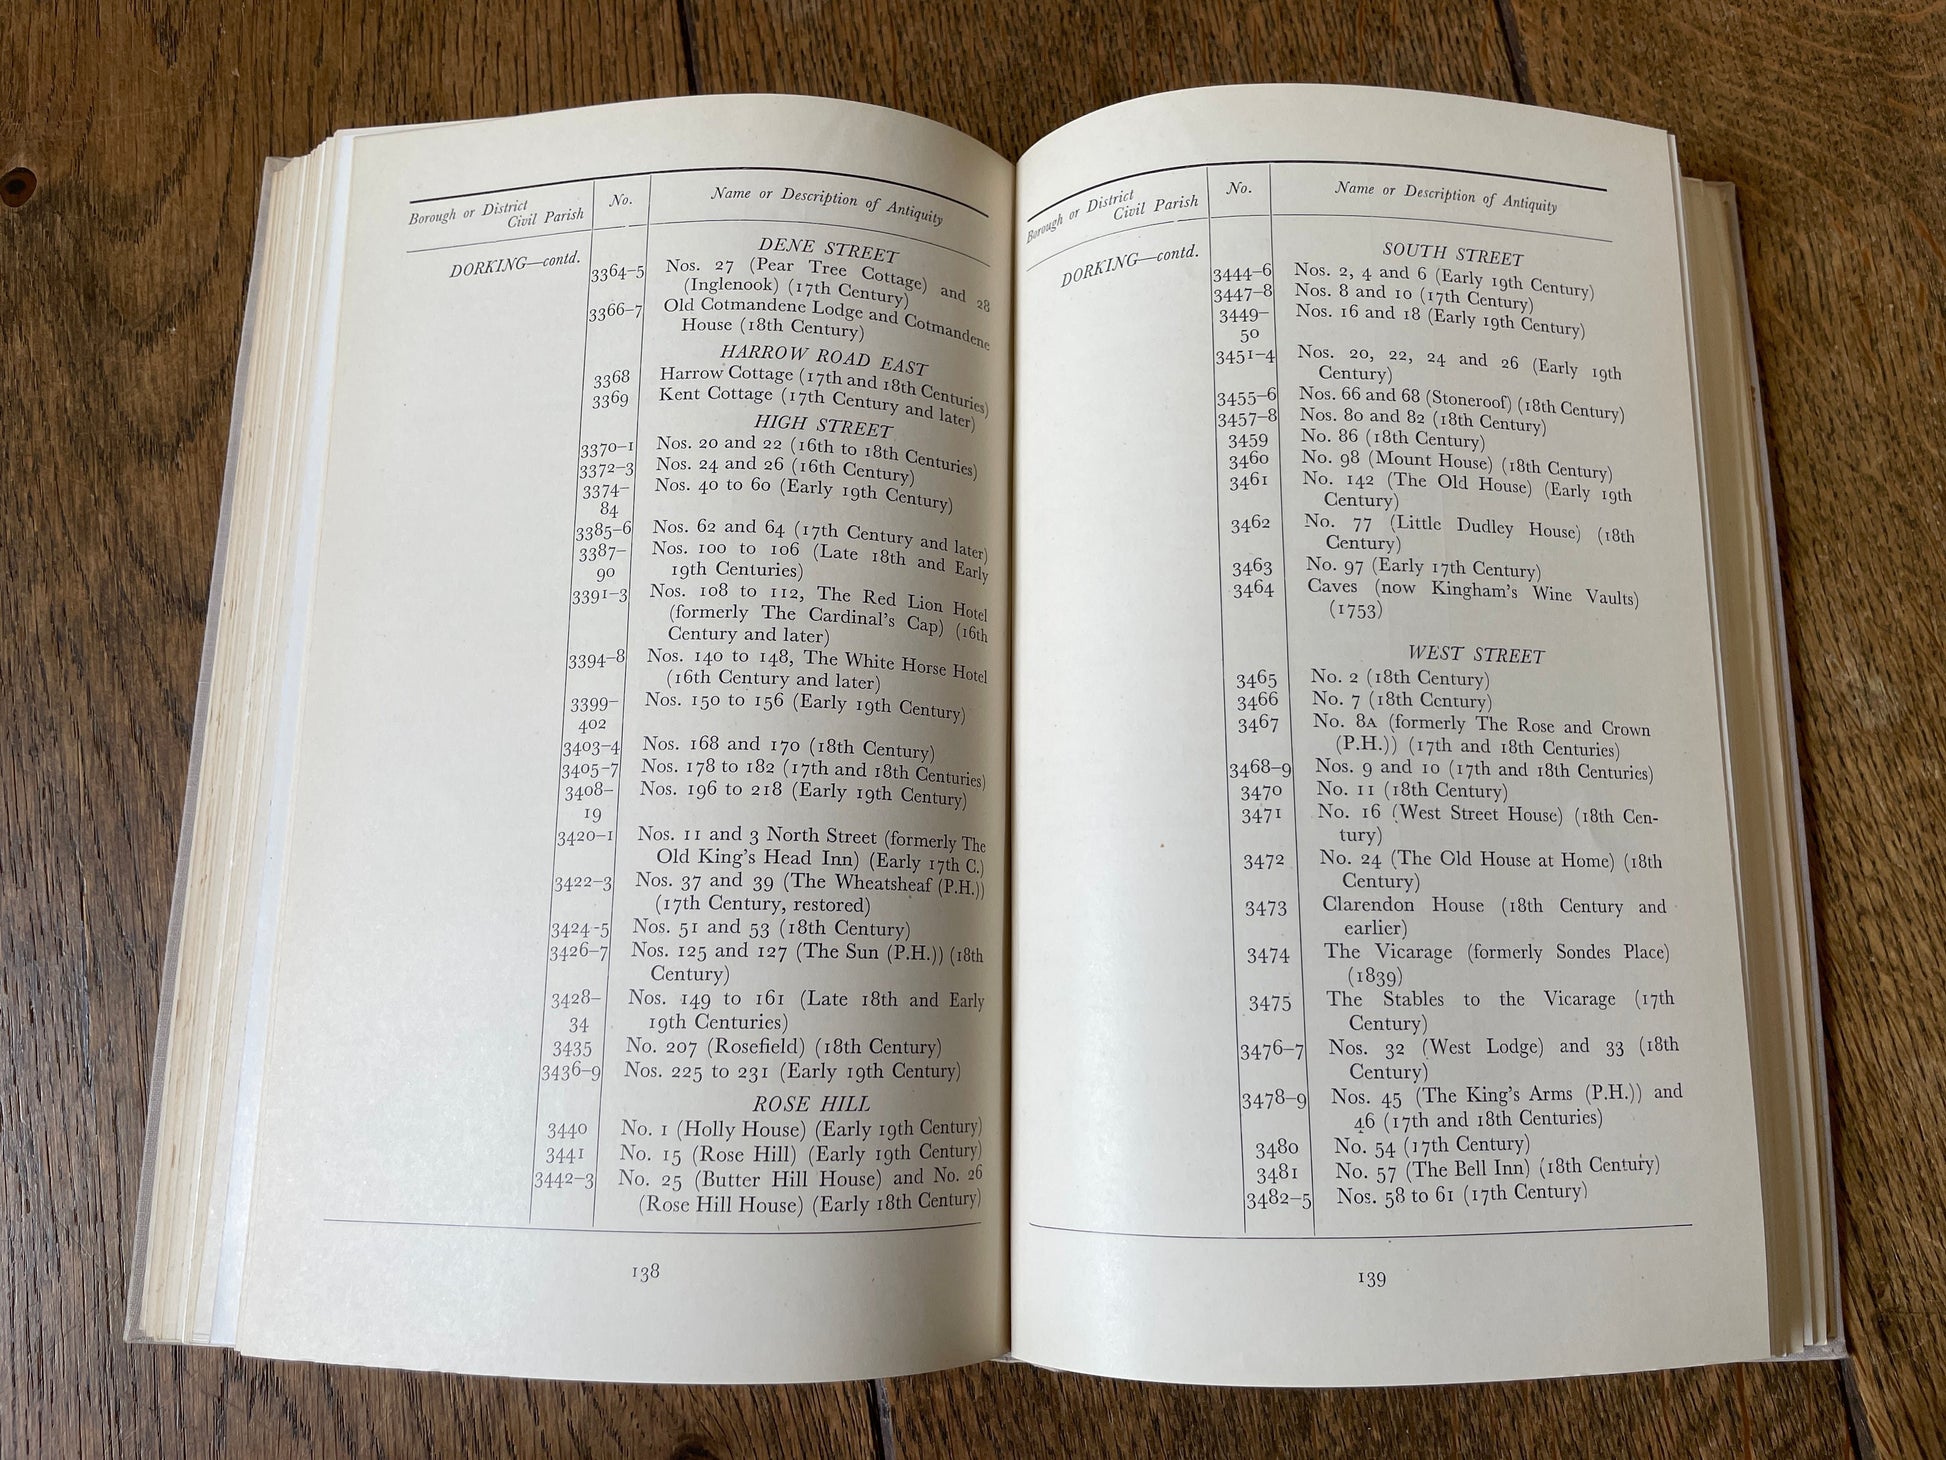 Borough or District
Civil Parish
No.
Name or Description of Antiquity
DORKING—contd.
DENE STREET
3364–5 Nos. 27 (Pear Tree Cottage) and 28
(Inglenook) (17th Century)
3366–7 Old Cotmandene Lodge and Cotmandene
House (18th Century)
HARROW ROAD EAST
3368 Harrow Cottage (17th and 18th Centuries)
3369 Kent Cottage (17th Century and later)
HIGH STREET
3370–1 Nos. 20 and 22 (16th to 18th Centuries)
3372–3 Nos. 24 and 26 (16th Century)
3374– Nos. 40 to 60 (Early 19th Century)
84
3385–6 Nos. 62 and 64 (17th Century and later)
3387– Nos. 100 to 106 (Late 18th and Early
90 19th Centuries)
3391–3 Nos. 108 to 112, The Red Lion Hotel
(formerly The Cardinal's Cap) (16th
Century and later)
3394–8 Nos. 140 to 148, The White Horse Hotel
(16th Century and later)
3399– Nos. 150 to 156 (Early 19th Century)
402
3403–4 Nos. 168 and 170 (18th Century)
3405–7 Nos. 178 to 182 (17th and 18th Centuries)
3408– Nos. 196 to 218 (Early 19th Century)
19
3420–1 Nos. 11 and 3 North Street (formerly The
Old King's Head Inn) (Early 17th C.)
3422–3 Nos. 37 and 39 (The Wheatsheaf (P.H.))
(17th Century, restored)
3424-5 Nos. 51 and 53 (18th Century)
3426–7 Nos. 125 and 127 (The Sun (P.H.)) (18th
Century)
3428– Nos. 149 to 161 (Late 18th and Early
34 19th Centuries)
3435 No. 207 (Rosefield) (18th Century)
3436–9 Nos. 225 to 231 (Early 19th Century)
ROSE HILL
3440 No. 1 (Holly House) (Early 19th Century)
3441 No. 15 (Rose Hill) (Early 19th Century)
3442–3 No. 25 (Butter Hill House) and No. 26
(Rose Hill House) (Early 18th Century)
138
Borough or District
Civil Parish
No.
Name or Description of Antiquity
DORKING—contd.
SOUTH STREET
3444–6 Nos. 2, 4 and 6 (Early 19th Century)
3447–8 Nos. 8 and 10 (17th Century)
3449– Nos. 16 and 18 (Early 19th Century)
50
3451–4 Nos. 20, 22, 24 and 26 (Early 19th
Century)
3455–6 Nos. 66 and 68 (Stoneroof) (18th Century)
3457–8 Nos. 80 and 82 (18th Century)
3459 No. 86 (18th Century)
3460 No. 98 (Mount House) (18th Century)
3461 No. 142 (The Old House) (Early 19th
Century)
3462 No. 77 (Little Dudley House) (18th
Century)
3463 No. 97 (Early 17th Century)
3464 Caves (now Kingham's Wine Vaults)
(1753)
WEST STREET
3465 No. 2 (18th Century)
3466 No. 7 (18th Century)
3467 No. 8A (formerly The Rose and Crown
(P.H.)) (17th and 18th Centuries)
3468–9 Nos. 9 and 10 (17th and 18th Centuries)
3470 No. 11 (18th Century)
3471 No. 16 (West Street House) (18th Cen-
tury)
3472 No. 24 (The Old House at Home) (18th
Century)
3473 Clarendon House (18th Century and
earlier)
3474 The Vicarage (formerly Sondes Place)
(1839)
3475 The Stables to the Vicarage (17th
Century)
3476–7 Nos. 32 (West Lodge) and 33 (18th
Century)
3478–9 Nos. 45 (The King's Arms (P.H.)) and
46 (17th and 18th Centuries)
3480 No. 54 (17th Century)
3481 No. 57 (The Bell Inn) (18th Century)
3482–5 Nos. 58 to 61 (17th Century)
139